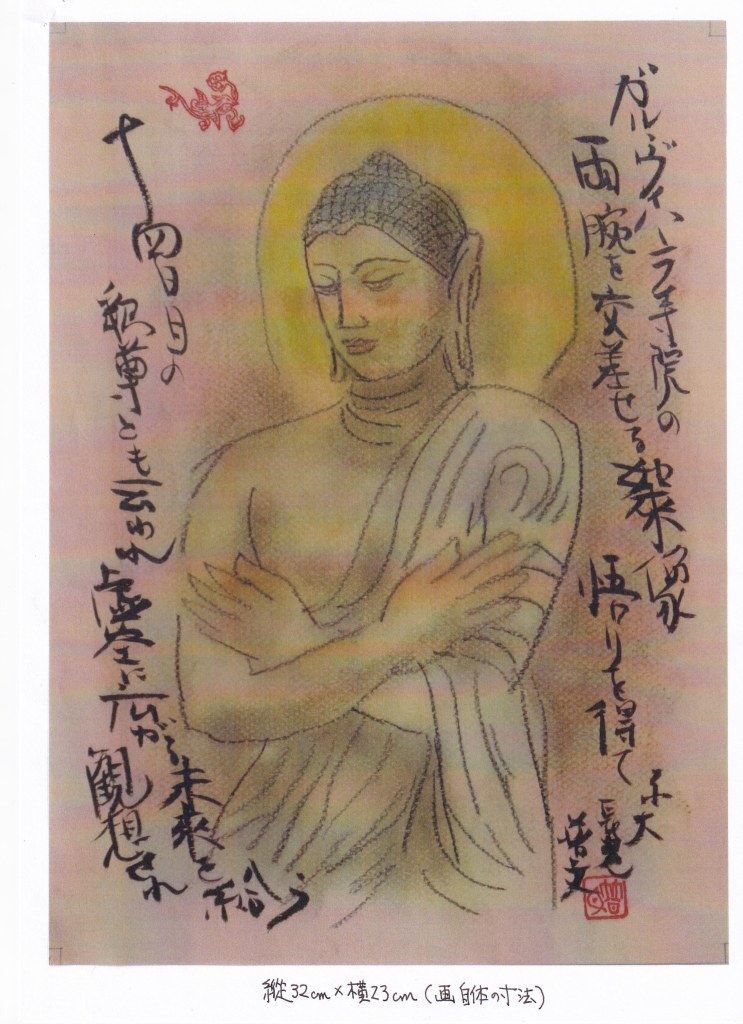 ガルヴィハーラ寺院の
両腕を交差せる 像
悟りを得て
十四日目の
釈尊とも云われ
虚空に広がる未来を
観想され
縦32cm×横23cm(画自体の寸法)